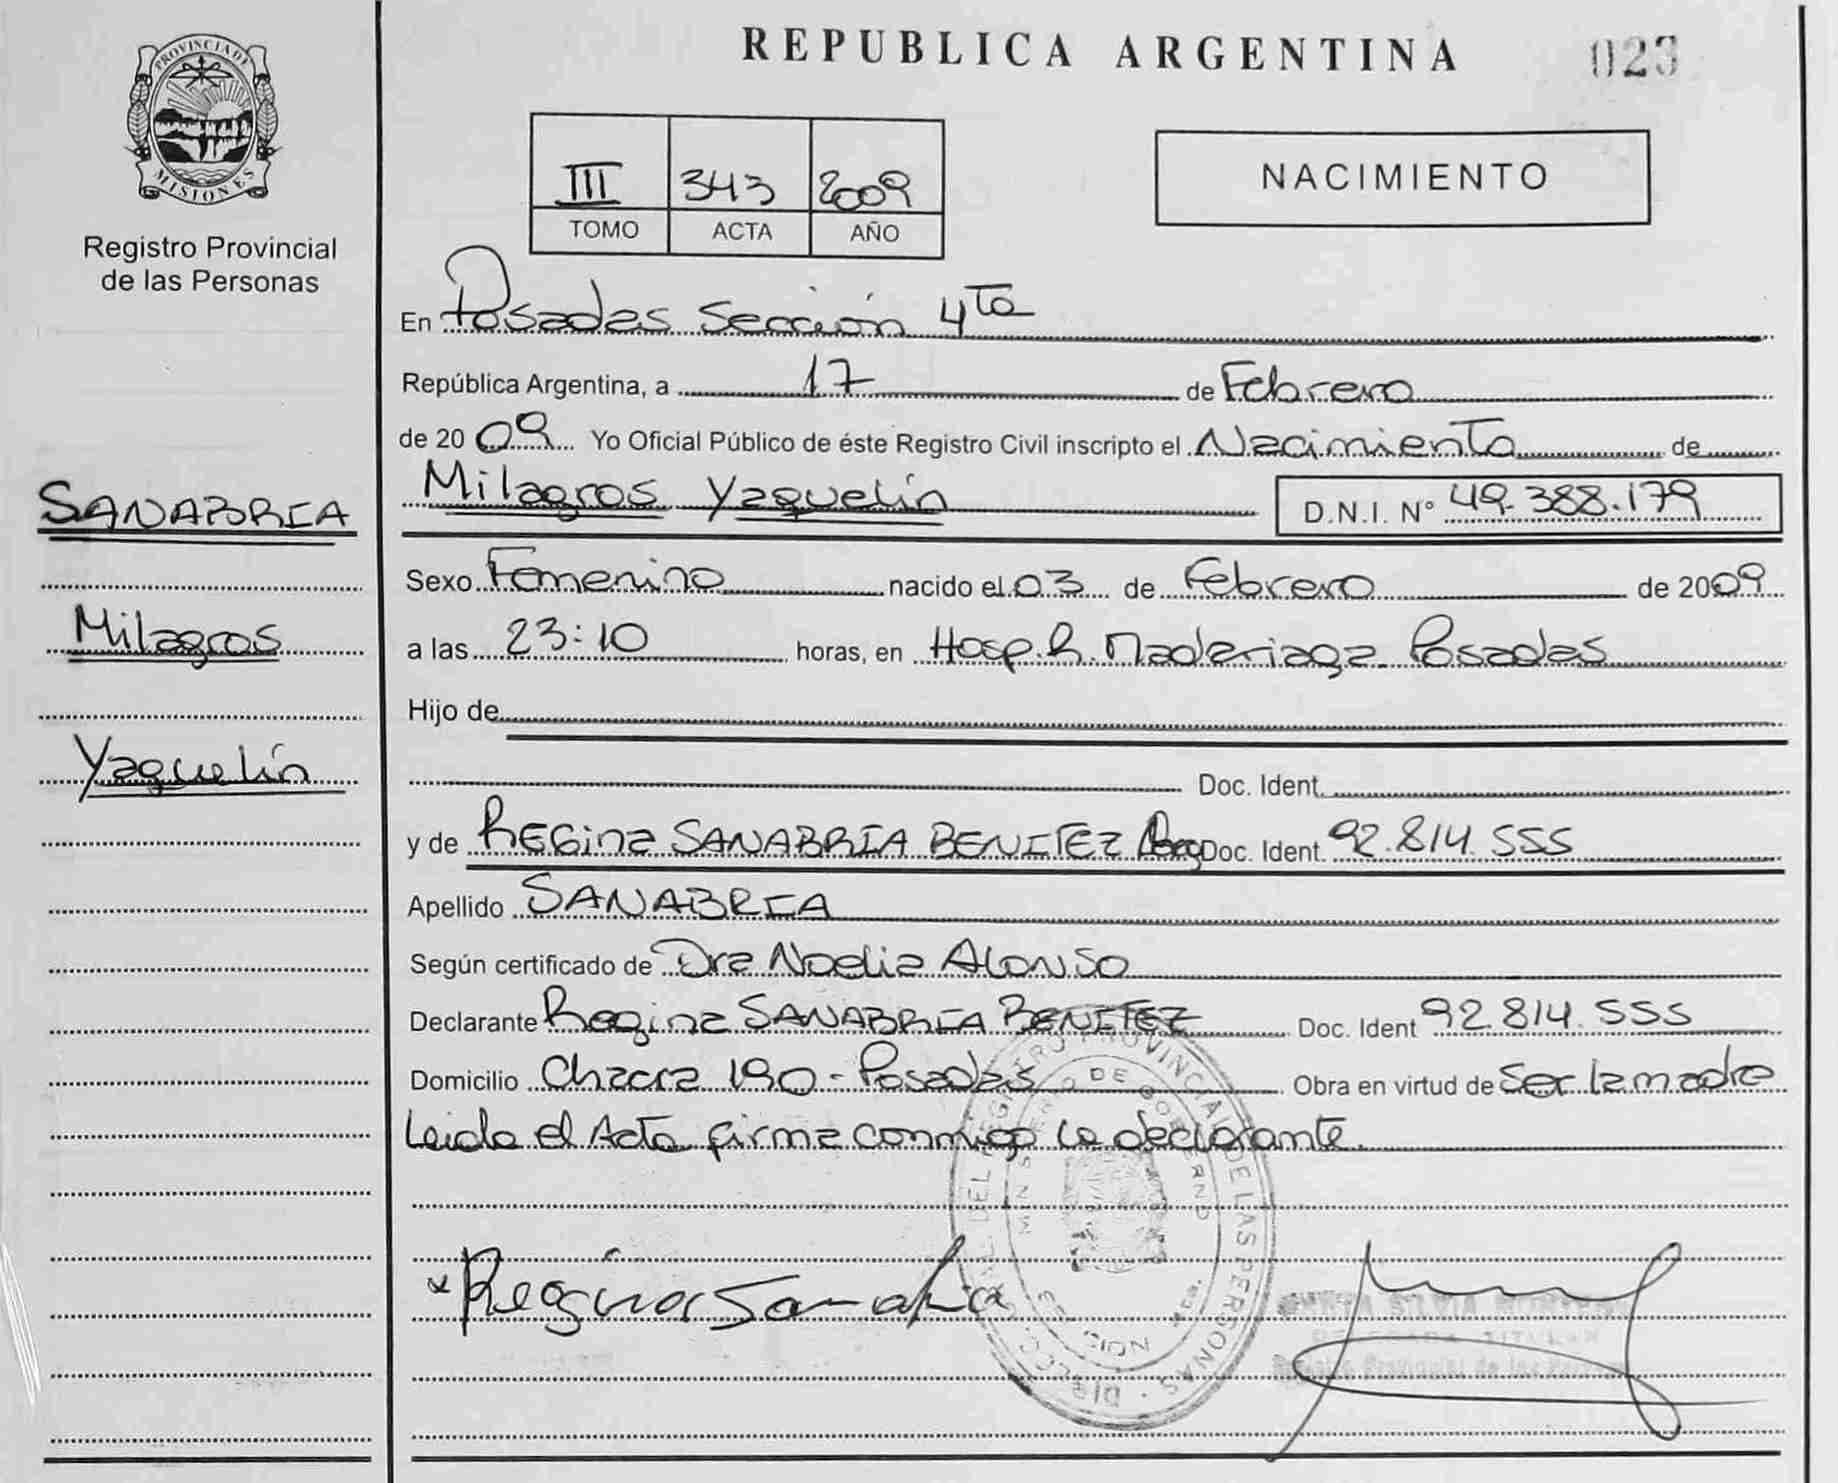 PROVINCIA DE
MISIONES
Registro Provincial
de las Personas
SANABRIA
Milagros
Yaquelín
REPUBLICA ARGENTINA
023
III 343 2009
TOMO ACTA AÑO
NACIMIENTO
En Posadas Sección 4ta
República Argentina, a 17 de Febrero
de 2009 Yo Oficial Público de éste Registro Civil inscripto el Nacimiento de
Milagros Yaquelín D.N.I. N° 49.388.179
Sexo Femenino nacido el 03 de Febrero de 2009
a las 23:10 horas, en Hosp. R. Madariaga Posadas
Hijo de
Doc. Ident.
y de Regina SANABRIA BENITEZ Doc. Ident. 92.814.555
Apellido SANABRIA
Según certificado de Dra Noelia Alonso
Declarante Regina SANABRIA BENITEZ Doc. Ident 92.814.555
Domicilio Chacra 190 - Posadas Obra en virtud de Ser la madre
Leida el Acta firma conmigo la declarante.
DEL REGISTRO PROVINCIAL DE LAS PERSONAS
MINISTERIO DE GOBIERNO
x Regina Sanabria
SILVIA
TITULAR
Provincial de las Personas